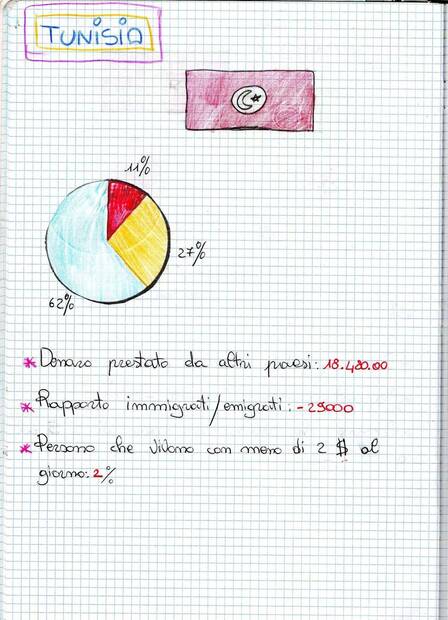 TUNISIA
11%
27%
62%
* Denaro prestato da altri paesi: 18.480.00
* Rapporto immigrati/emigrati: -29000
* Persone che vivono con meno di 2 $ al
giorno: 2%